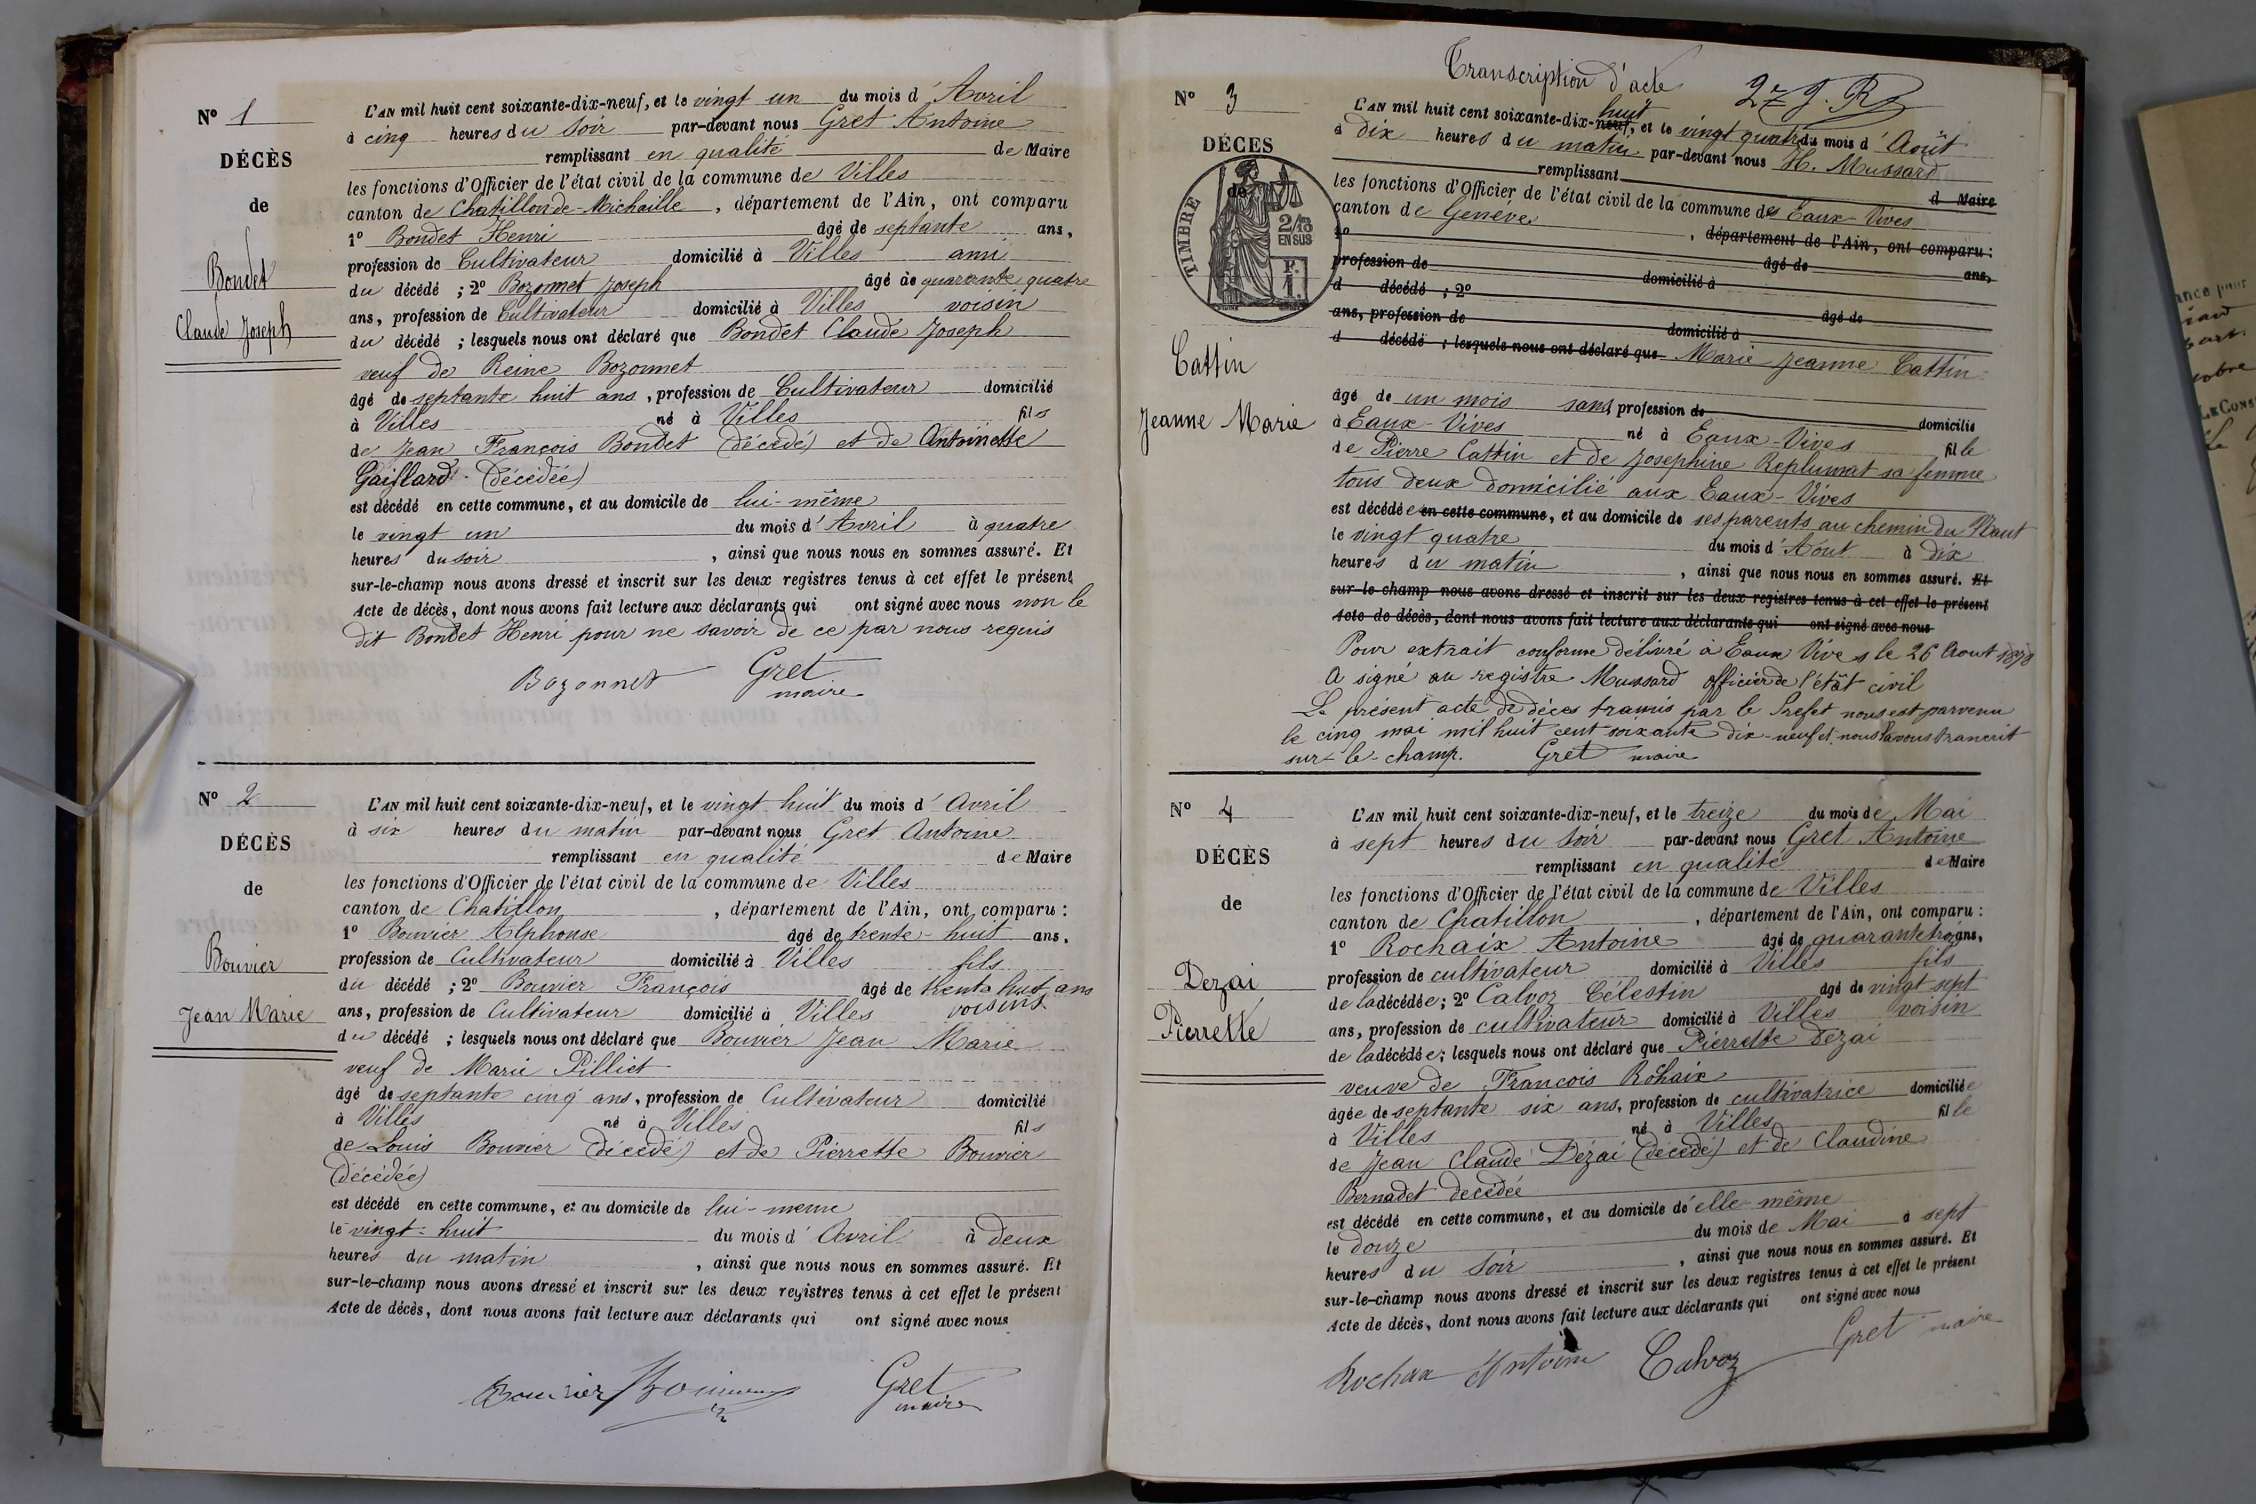 Nº 1
DÉCÈS
de
Bondet
Claude Joseph
L'AN mil huit cent soixante-dix-neuf, et le vingt un du mois d'Avril
à cinq heures du soir par-devant nous Gret Antoine
remplissant en qualité de Maire
les fonctions d'Officier de l'état civil de la commune de Villes
canton de Chatillon de Michaille, département de l'Ain, ont comparu
1º Bondet Henri âgé de septante ans,
profession de Cultivateur domicilié à Villes ami
du décédé ; 2º Bozonnet Joseph âgé de quarante quatre
ans, profession de Cultivateur domicilié à Villes voisin
du décédé ; lesquels nous ont déclaré que Bondet Claude Joseph
veuf de Reine Bozonnet
âgé de septante huit ans, profession de Cultivateur domicilié
à Villes né à Villes fils
de Jean François Bondet (décédé) et de Antoinette
Gaillard (décédée)
est décédé en cette commune, et au domicile de lui-même
le vingt un du mois d'Avril à quatre
heures du soir, ainsi que nous nous en sommes assuré. Et
sur-le-champ nous avons dressé et inscrit sur les deux registres tenus à cet effet le présent
Acte de décès, dont nous avons fait lecture aux déclarants qui ont signé avec nous non le
dit Bondet Henri pour ne savoir de ce par nous requis
Bozonnet Gret
maire
Nº 2
DÉCÈS
de
Bouvier
Jean Marie
L'AN mil huit cent soixante-dix-neuf, et le vingt huit du mois d'Avril
à six heures du matin par-devant nous Gret Antoine
remplissant en qualité de Maire
les fonctions d'Officier de l'état civil de la commune de Villes
canton de Chatillon, département de l'Ain, ont comparu :
1º Bouvier Alphonse âgé de trente-huit ans,
profession de Cultivateur domicilié à Villes fils
du décédé ; 2º Bouvier François âgé de trente huit ans
ans, profession de Cultivateur domicilié à Villes voisins
du décédé ; lesquels nous ont déclaré que Bouvier Jean Marie
veuf de Marie Pilliet
âgé de septante cinq ans, profession de Cultivateur domicilié
à Villes né à Villes fils
de Louis Bouvier (décédé) et de Pierrette Bouvier
(décédée)
est décédé en cette commune, et au domicile de lui-meme
le vingt-huit du mois d'Avril à deux
heures du matin, ainsi que nous nous en sommes assuré. Et
sur-le-champ nous avons dressé et inscrit sur les deux registres tenus à cet effet le présent
Acte de décès, dont nous avons fait lecture aux déclarants qui ont signé avec nous
Bouvier Gret
maire
Transcription d'acte
Nº 3
DÉCES
de
TIMBRE
2/10
EN SUS
F.
1.
Cattin
Jeanne Marie
huit
L'AN mil huit cent soixante-dix-neuf, et le vingt quatre du mois d'Août
à dix heures du matin par-devant nous H. Mussard
remplissant d Maire
les fonctions d'Officier de l'état civil de la commune des Eaux-Vives
canton de Genève, département de l'Ain, ont comparu :
1º âgé de ans,
profession de domicilié à
d décédé ; 2º âgé de
ans, profession de domicilié à
d décédé ; lesquels nous ont déclaré que Marie Jeanne Cattin
âgé de un mois sans profession de domicilié
à Eaux-Vives né à Eaux-Vives fille
de Pierre Cattin et de Josephine Replumat sa femme
tous deux domicilié aux Eaux-Vives
est décédée en cette commune, et au domicile de ses parents au chemin du Nant
le vingt quatre du mois d'Août à dix
heures du matin, ainsi que nous nous en sommes assuré. Et
sur-le-champ nous avons dressé et inscrit sur les deux registres tenus à cet effet le présent
Acte de décès, dont nous avons fait lecture aux déclarants qui ont signé avec nous
Pour extrait conforme délivré à Eaux Vives le 26 Aout 1878
A signé au registre Mussard officier de l'état civil
Le présent acte de décès tramis par le Prefet nous est parvenu
le cinq mai mil huit cent soixante dix-neuf et nous l'avons trancrit
sur-le-champ. Gret maire
Nº 4
DÉCÈS
de
Dezai
Pierrette
L'AN mil huit cent soixante-dix-neuf, et le treize du mois de Mai
à sept heures du soir par-devant nous Gret Antoine
remplissant en qualité de Maire
les fonctions d'Officier de l'état civil de la commune de Villes
canton de Chatillon, département de l'Ain, ont comparu :
1º Rochaix Antoine âgé de quarante trois ans,
profession de cultivateur domicilié à Villes fils
de la décédée ; 2º Calvoz Célestin âgé de vingt sept
ans, profession de cultivateur domicilié à Villes voisin
de la décédée ; lesquels nous ont déclaré que Pierrette Dezai
veuve de François Rohaix
âgée de septante six ans, profession de cultivatrice domiciliée
à Villes né à Villes fille
de Jean Claude Dézai (décédé) et de Claudine
Bernadet decédée
est décédé en cette commune, et au domicile de elle-même
le douze du mois de Mai à sept
heures du soir, ainsi que nous nous en sommes assuré. Et
sur-le-champ nous avons dressé et inscrit sur les deux registres tenus à cet effet le présent
Acte de décès, dont nous avons fait lecture aux déclarants qui ont signé avec nous
Rochaix Antoine Calvoz Gret maire